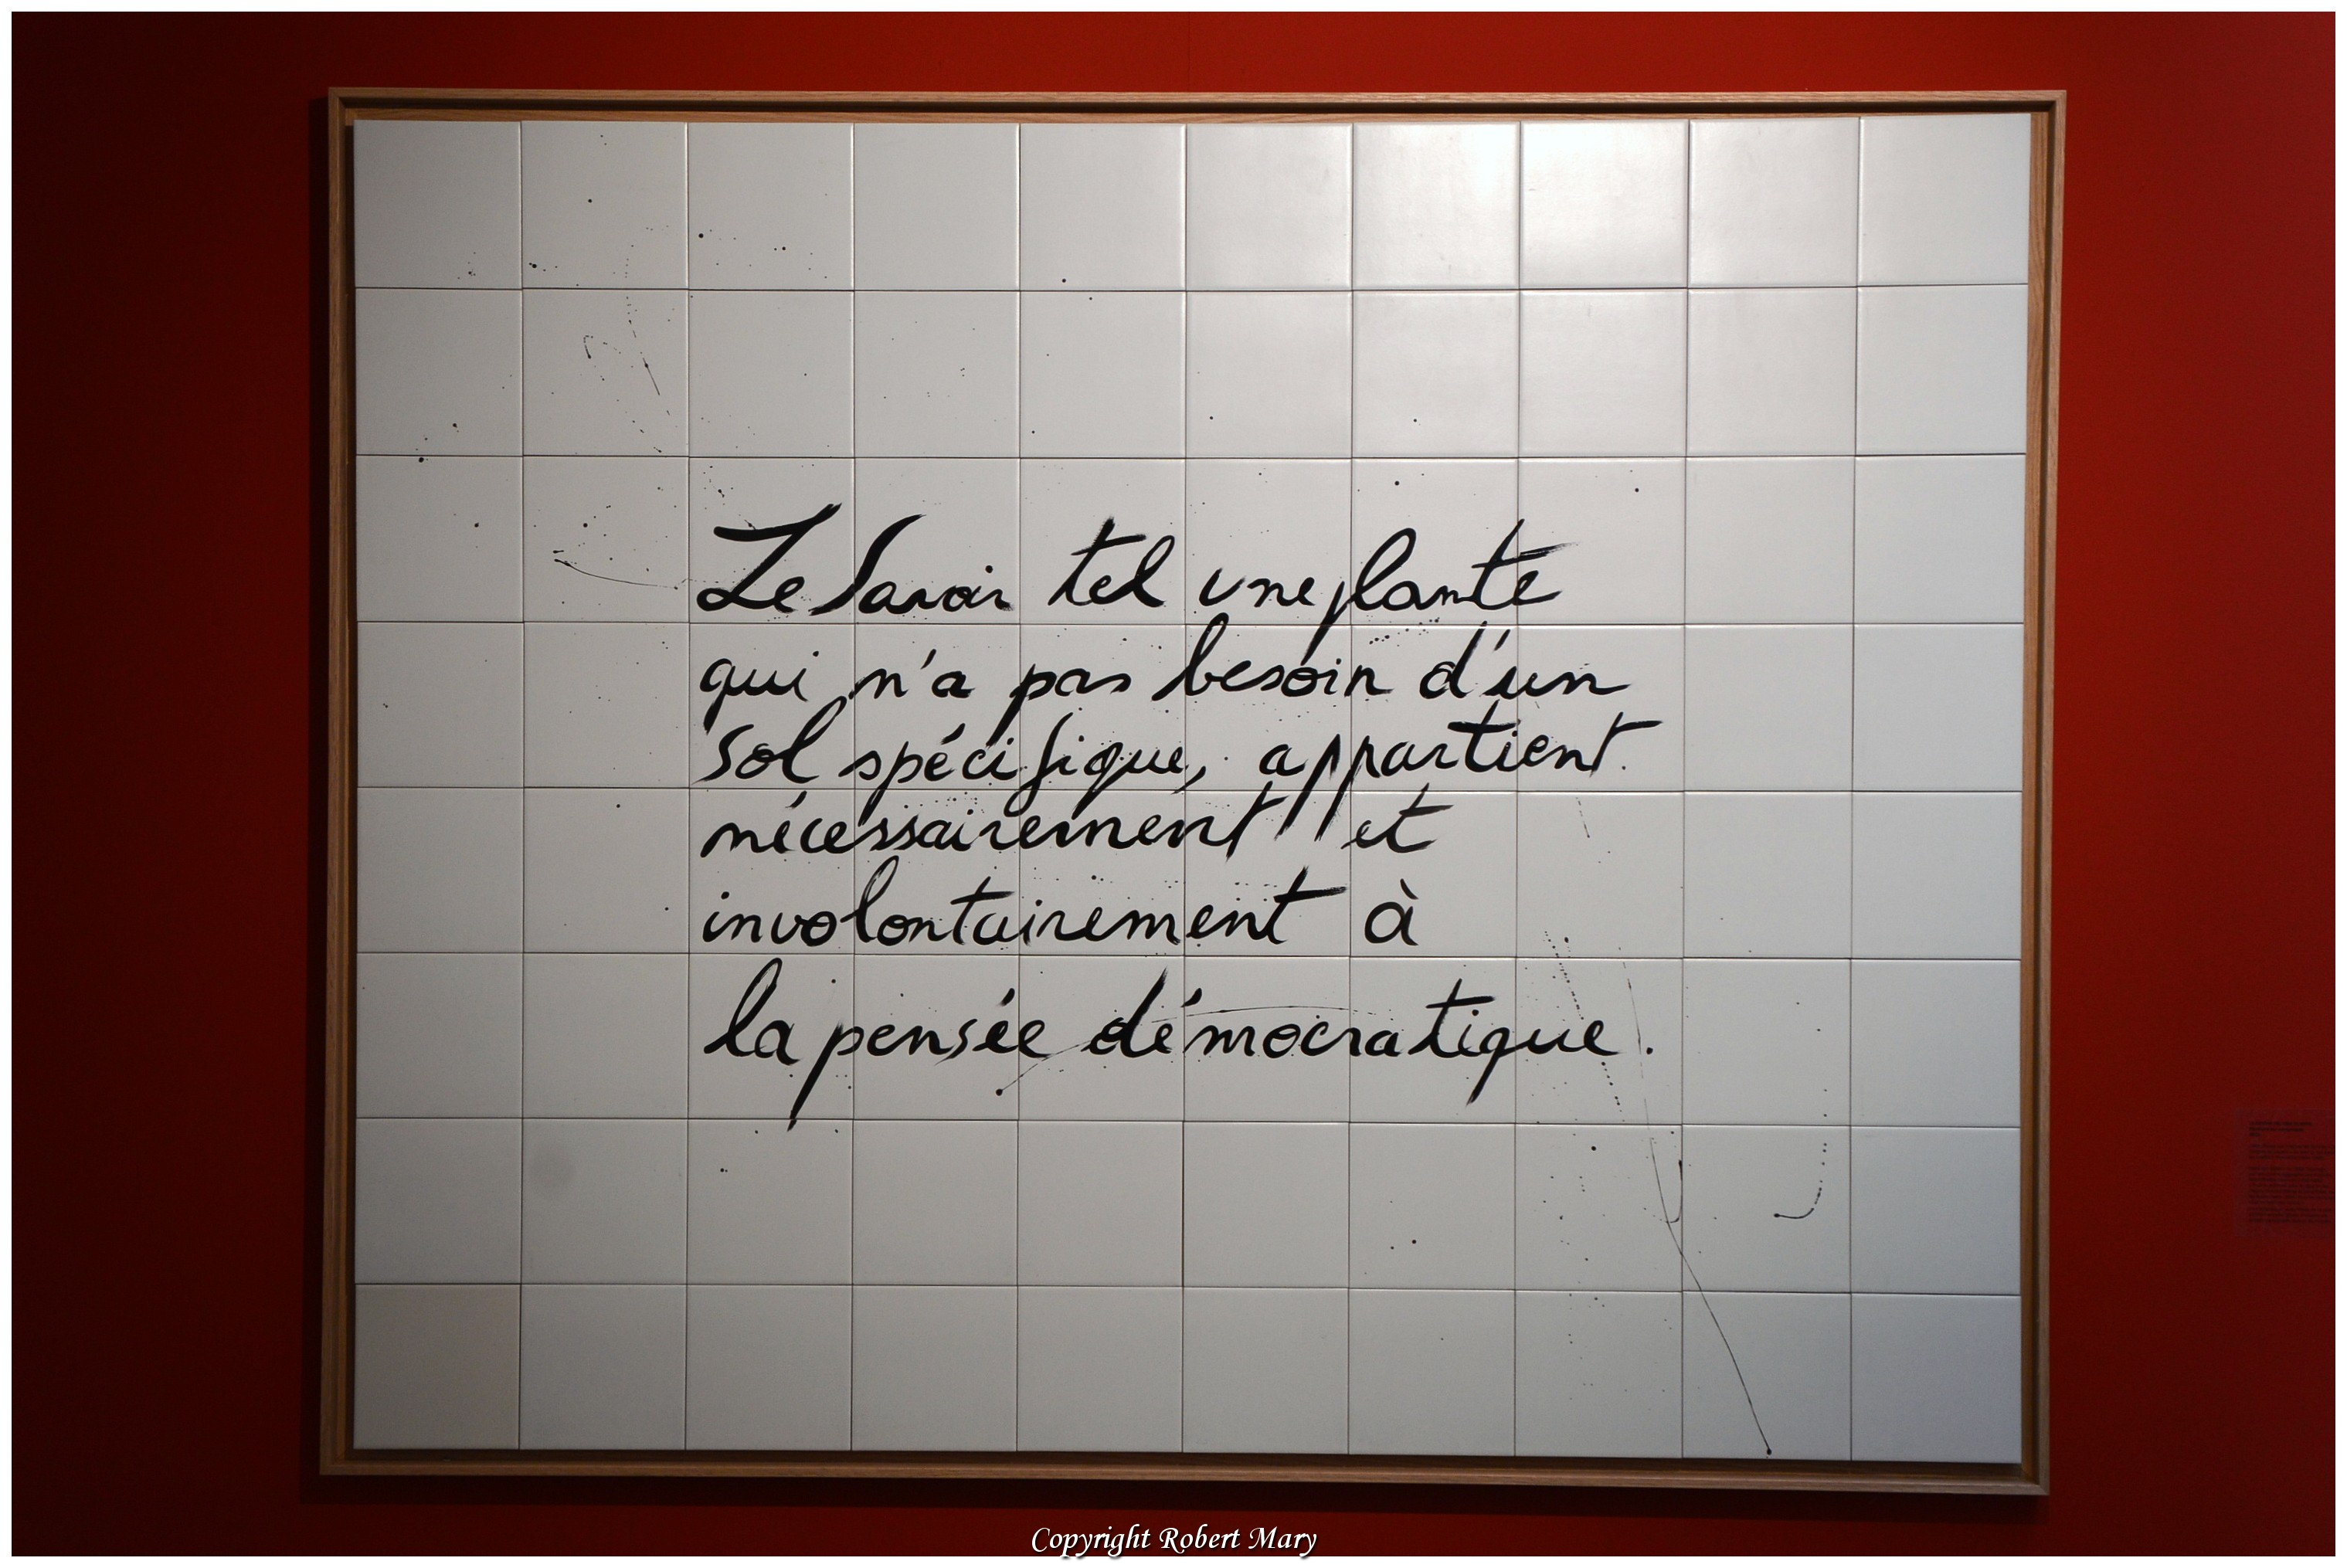 Le Savoir tel une plante
qui n'a pas besoin d'un
sol spécifique, appartient
nécessairement et
involontairement à
la pensée démocratique.
Copyright Robert Mary